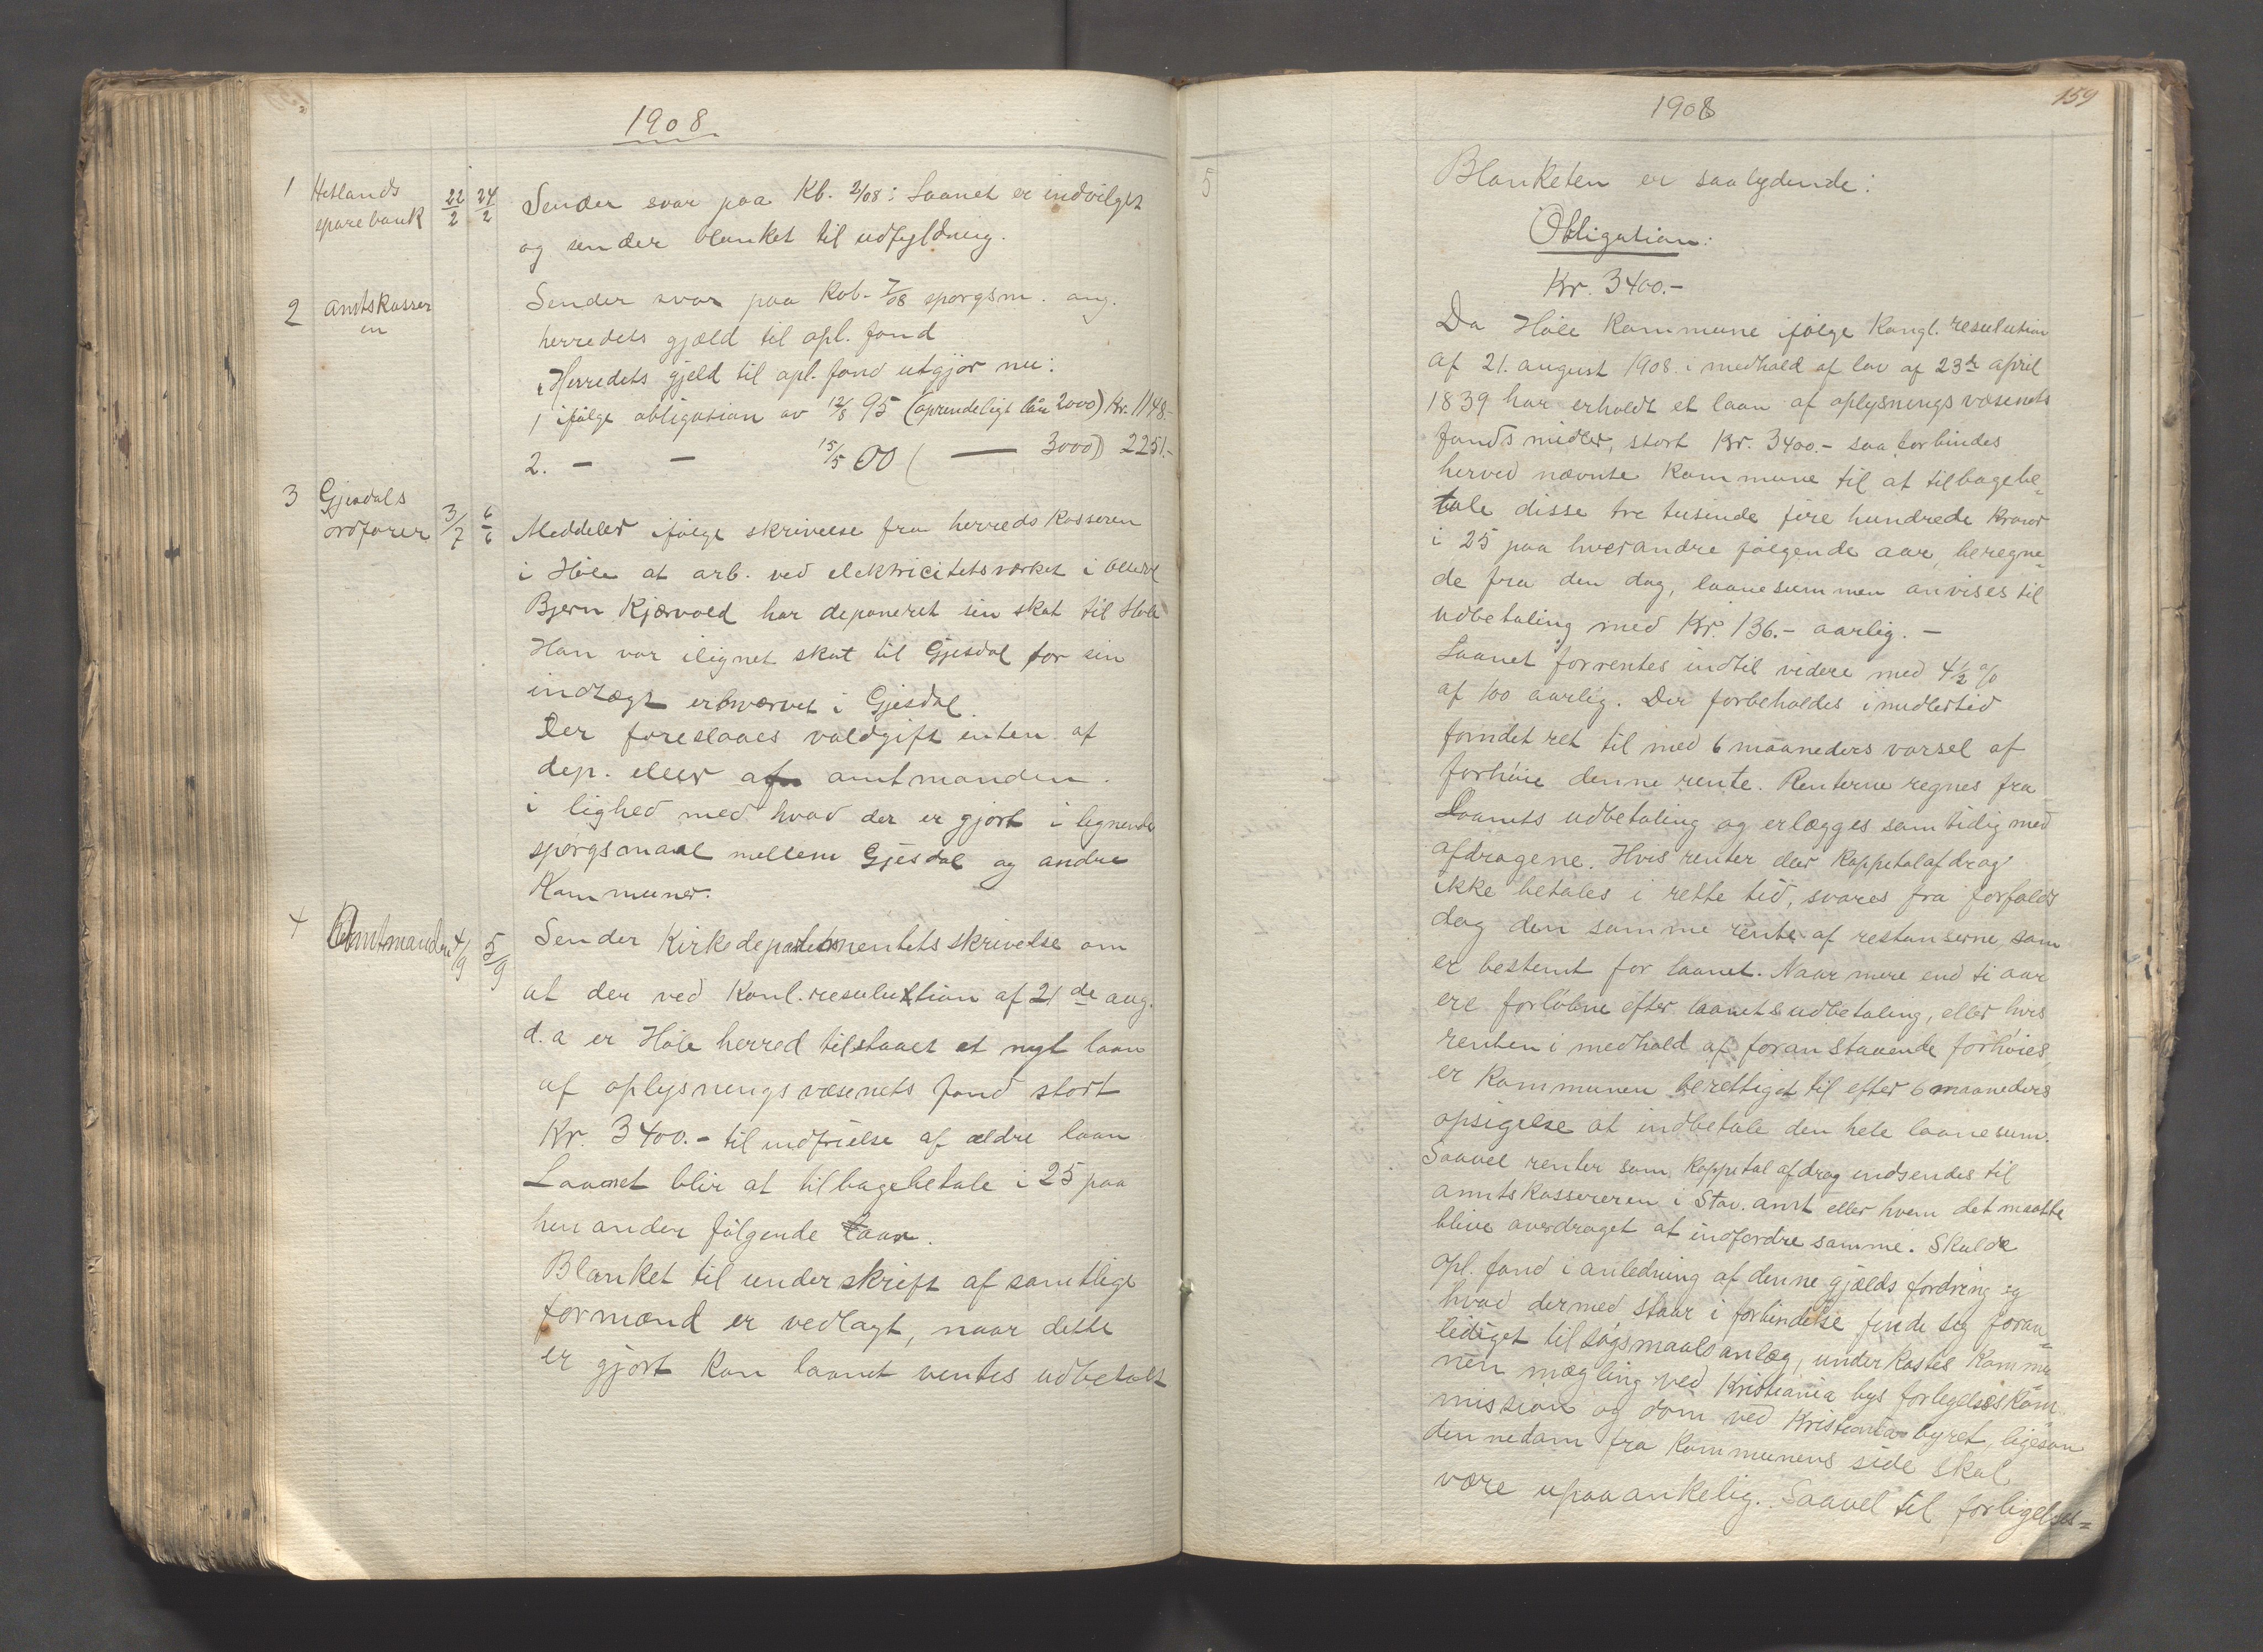 1908
1 Hetlands sparebank 22/2 24/2 Sender svar paa Kb. 2/08: Laanet er indvilget
og sender blanket til udfyldning.
2 Amtskasseren Sender svar paa Kob. 7/08 spørgsm. ang.
herredets gjæld til opl. fond
Herredets gjeld til opl. fond utgjør nu:
1 ifølge obligation av 12/8 95 (oprindeligt lån 2000) Kr. 1148.-
2. - - 15/5 00 ( — 3000) 2251.-
3 Gjesdals ordfører 3/7 6/6 Meddeler ifølge skrivelse fra herredskasseren
i Høle at arb. ved elektricitetsværket i
Bjørn Kjærvold har deponeret sin skat til Høle
Han var ilignet skat til Gjesdal for sin
indtægt erhvervet i Gjesdal.
Der foreslaaes voldgift enten af
dep. eller af amtmanden.
i lighed med hvad der er gjort i lignende
spørgsmaal mellem Gjesdal og andre
Kommuner.
4 Amtmanden 4/9 5/9 Sender Kirkedepartementets skrivelse om
at der ved Konl. resulution af 21de aug.
d.a er Høle herred tilstaaet et nyt laan
af oplysningsvæsenets fond stort
Kr. 3400.- til indfrielse af ældre laan
Laanet blir at tilbagebetale i 25 paa
hinanden følgende aar.
Blanket til underskrift af samtlige
formænd er vedlagt, naar dette
er gjort kan laanet ventes udbetalt
1908
159
5
Blanketen er saalydende:
Obligation:
Kr. 3400.-
Da Høle Kommune ifølge Kongl. resulution
af 21. august 1908 i medhold af lov af 23de april
1839 har erholdt et laan af oplysningsvæsenets
fonds midler, stort Kr. 3400.- saa forbindes
herved nævnte Kommune til at tilbagebe=
tale disse tre tusinde fire hundrede Kroner
i 25 paa hverandre følgende aar, beregne=
de fra den dag, laanesummen anvises til
udbetaling med Kr. 136.- aarlig. -
Laanet forrentes indtil videre med 4 1/2 %
af 100 aarlig. Der forbeholdes imidlertid
fondet ret til med 6 maaneders varsel af
forhöie denne rente. Renterne regnes fra
Laanets udbetaling og erlægges samtidig med
afdragene. Hvis renter eller Kappetalafdrag
ikke betales i rette tid, svares fra forfalds
dag den samme rente af restanserne, som
er bestemt for laanet. Naar mere end ti aar
ere forløbne efter laanets udbetaling, eller hvis
renten i medhold af foranstaaende forhöies
er Kommunen berettiget til efter 6 maaneders
opsigelse at indbetale den hele laanesum.
Saavel renter som Kappetalafdrag indsendes til
amtskassereren i Stav. amt eller hvem det maatte
blive overdraget at indfordre samme. Skulde
opl. fond i anledning af denne gjælds fordring og
hvad dermed staar i forbindelse finde sig foran=
lediget til søgsmaalsanlæg, underkastes Kommu
nen mægling ved Kristiania bys forlegelseskom
mission og dom ved Kristiania byret, ligesom
denne dom fra Kommunens side skal
være upaaankelig. Saavel til forligelses=